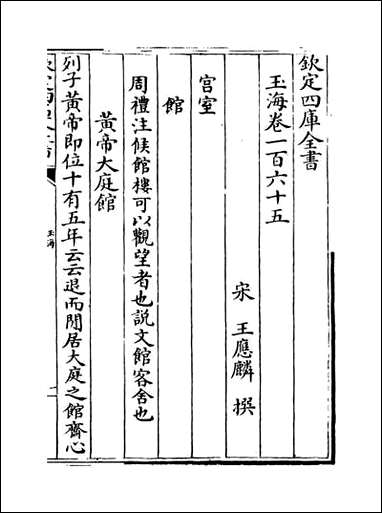 欽定四庫全書
玉海卷一百六十五
宋 王應麟 撰
宫室
館
周禮注候館樓可以觀望者也説文館客舍也
黄帝大庭館
列子黄帝即位十有五年云云退而閒居大庭之館齊心
玉海